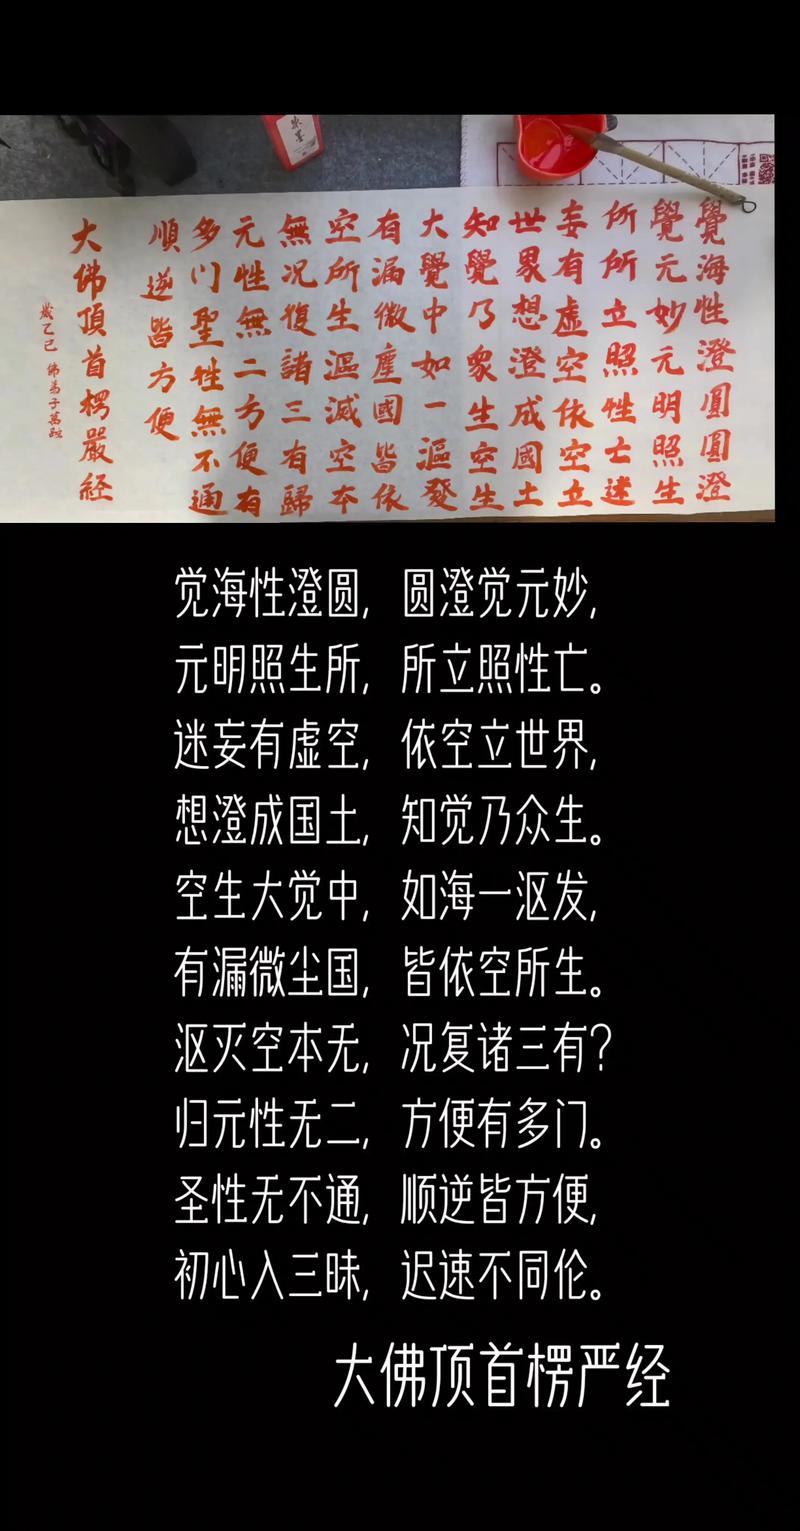 覺海性澄圓圓澄
覺元妙元明照生
所所立照性亡迷
妄有虛空依空立
世界想澄成國土
知覺乃衆生空生
大覺中如一漚發
有漏微塵國皆依
空所生漚滅空本
無况復諸三有歸
元性無二方便有
多门聖性無不通
順逆皆方便
大佛頂首楞嚴経
歲乙巳 佛弟子
觉海性澄圆, 圆澄觉元妙,
元明照生所, 所立照性亡。
迷妄有虚空, 依空立世界,
想澄成国土, 知觉乃众生。
空生大觉中, 如海一沤发,
有漏微尘国, 皆依空所生。
沤灭空本无, 况复诸三有?
归元性无二, 方便有多门。
圣性无不通, 顺逆皆方便,
初心入三昧, 迟速不同伦。
大佛顶首楞严经